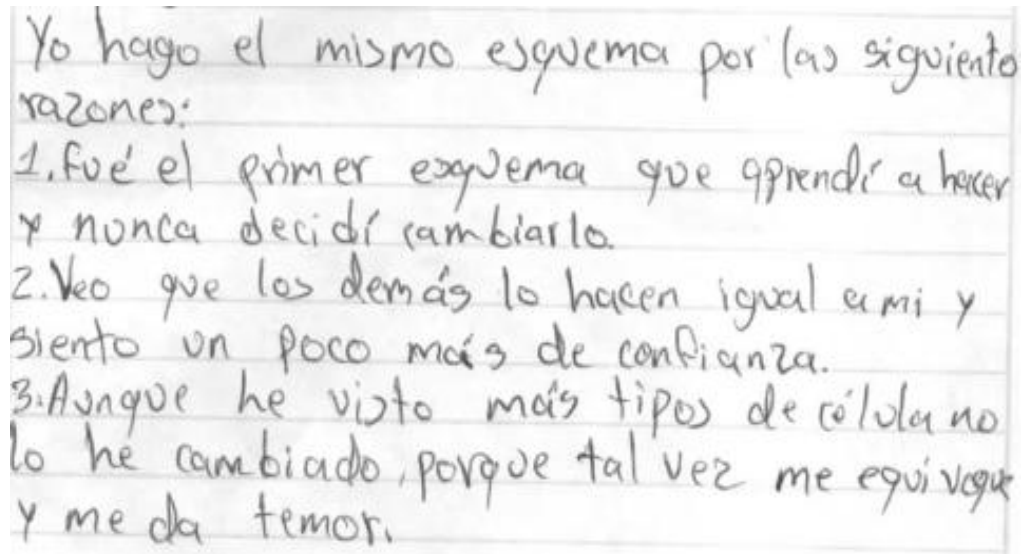 Yo hago el mismo esquema por las siguiente
razones:
1. fué el primer esquema que aprendí a hacer
y nunca decidí cambiarlo.
2. Veo que los demás lo hacen igual a mi y
siento un poco más de confianza.
3. Aunque he visto más tipos de célula no
lo he cambiado, porque tal vez me equivoque
y me da temor.